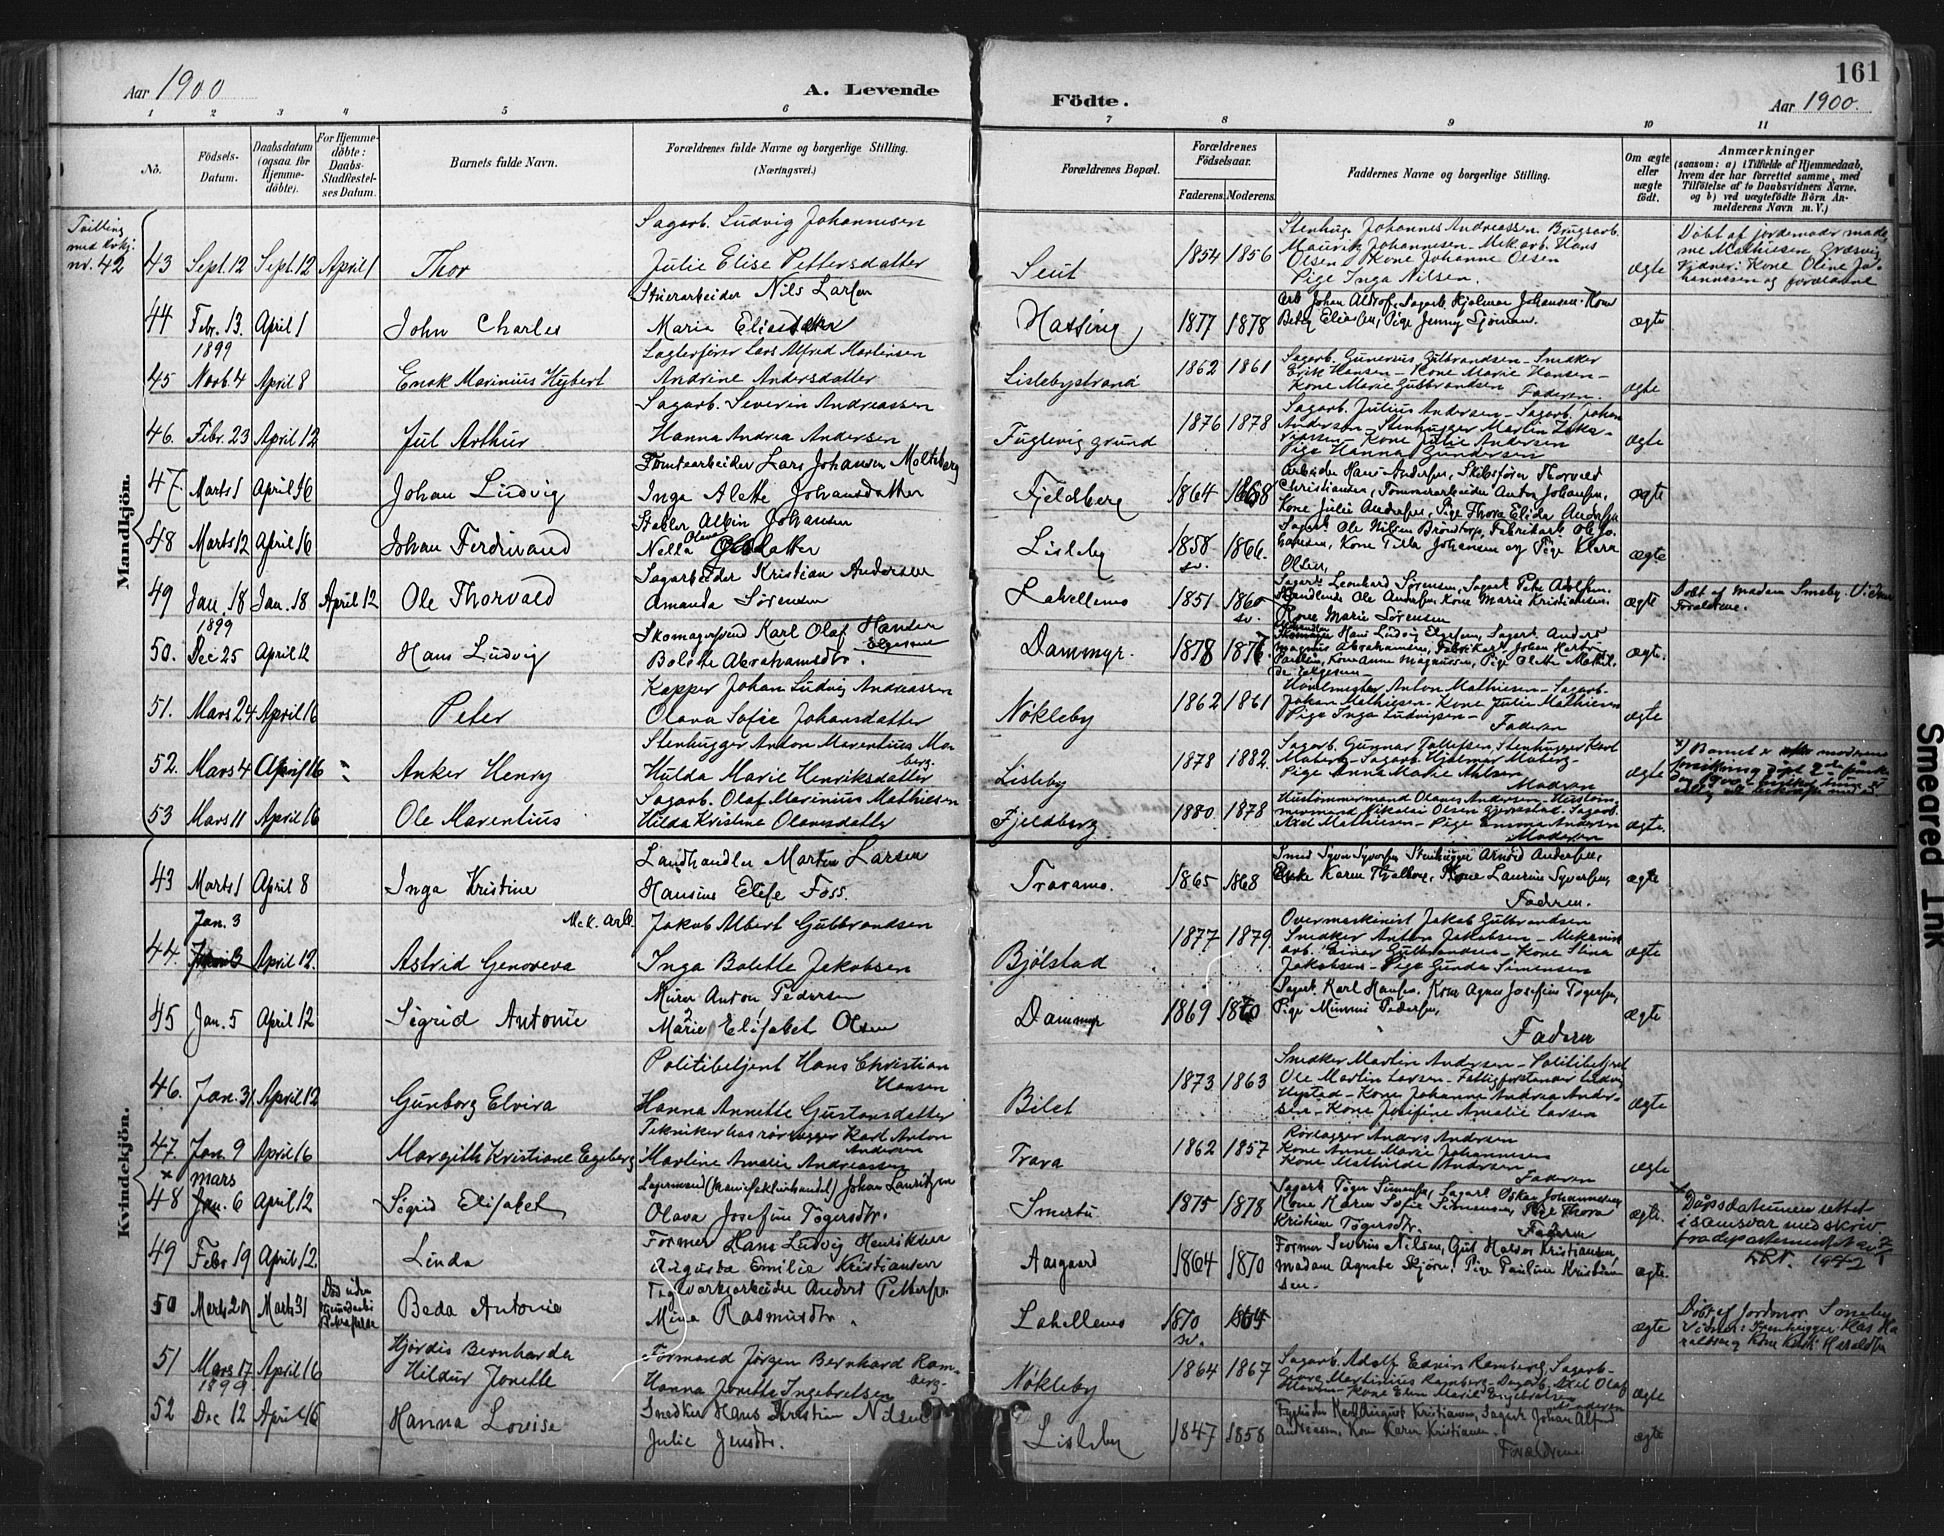 161
Aar 1900
A. Levende
Födte.
Aar 1900.
1 2 3 4 5 6 7 8 9 10 11
No.
Födsels-Datum.
Daabsdatum (ogsaa for Hjemmedöbte).
For Hjemmedöbte: Daabs-Stadfæstelses Datum.
Barnets fulde Navn.
Forældrenes fulde Navne og borgerlige Stilling. (Næringsvei.)
Forældrenes Bopæl.
Forældrenes Födselsaar.
Faderens. Moderens.
Faddernes Navne og borgerlige Stilling.
Om ægte eller uægte födt.
Anmærkninger
(saasom: a) i Tilfælde af Hjemmedaab, hvem der har forrettet samme, med Tilföielse af to Daabsvidners Navne. og b) ved uægtefödte Börn Anmelderens Navn m. V.)
Mandkjön.
Tvilling med kvkj. nr. 42
43 Sept. 12 Sept. 12 April 1 Thor
Sagarb. Ludvig Johannesen
Julie Elise Pettersdatter
Seut 1854 1856
Stenhug. Johannes Andreassen. Brugsarb.
Mauritz Johannesen. Mek. arb. Hans
Olsen. Kone Johanne Olsen
Pige Inga Nilsen.
ægte
Döbt af jordemoder mada
me Mathiesen Græsvig
Vidner: Kone Oline Jo-
hannesen og forældrene
44 Febr. 13. April 1 John Charles
Stuerarbeider Nils Larsen
Marie Eliasdatter
1877 1878
Pige Jenny Sjöman.
ægte
1899
45 Novb. 4 April 8 Enok Marinius Hybert
Lars Alfred Martinsen
Andrine Andersdatter
Lislebystrand 1862 1861
Sagarb. Gunerius Gulbrandsen - Snedker
Erik Hansen - Kone Marie Hansen -
Kone Marie Gulbrandsen Faderen.
ægte
46. Febr. 23 April 12 Jul Arthur
Sagarb. Severin Andreassen
Hanna Andrea Andersen
Fuglevig grund 1876 1878
Sagarb. Julius Andersen - Sagarb. Johan
Andersen - Stenhugger Martin Zaka-
riassen - Kone Julie Andersen
Pige Hanna Gundersen
ægte
47. Marts 1 April 16 Johan Ludvig
Tomtearbeider Lars Johansen Moltzberg
Inga Alette Johansdatter
Fjeldberg 1864 1868
Arbeider Hans Andersen, Skibsförer Thorvald
Christiansen, Tommerarbeider Anton Johansen,
Kone Julie Andersen, Pige Thora Elida Andersen
ægte
48 Marts 12 April 16 Johan Ferdinand
Albin Johansen
Nella Olava Olsdatter
Lisleby 1858 sv. 1866.
Sagarb. Ole Nilsen Bronstorp, Fabrikarb. Ole Jo-
hansen, Kone Tilla Johansen og Pige Klara
Olsen,
ægte
49 Jan. 18 Jan. 18 April 12 Ole Thorvald
Sagarbeider Kristian Andersen
Amanda Sörensen
Lahellemo 1851 1860 sv.
Sagarb. Leonhard Sörensen, Sagarb. Peter Adolfsen.
Handlende Ole Andersen, Kone Marie Kristiansen.
Kone Marie Sörensen
ægte
Döbt af madam Smeby. Vidner
Forældrene.
1899
50. Dec 25 April 12 Hans Ludvig
Skomagersvend Karl Olaf Hansen Elgesem
Bolette Abrahamsdtr.
Dammyr. 1878 1877
Skomager Hans Ludvig Elgesem, Sagarb. Anders
Magnus Abrahamsen, Fabrikarb. Johan Hartvig
Paulsen, Kone Anne Magnussen, Pige Olette Mathil-
de Elgesem
ægte.
51. Mars 24 April 16 Peter
Kapper Johan Ludvig Andreassen
Olava Sofie Johansdatter
Nökleby 1862 1861
Hövelmester Anton Mathiesen - Sagarb.
Johan Mathiesen - Kone Julie Mathiesen
Pige Inga Ludvigsen - Faderen
ægte
52. Mars 4 April 16 Anker Henry
Stenhugger Anton Marentius Mo-
berg.
Hulda Marie Henriksdatter
Lisleby 1878 1882.
Sagarb. Gunnar Tollefsen, Stenhugger Karl
Moberg - Sagarb. Hjalmar Moberg -
Pige Anna Marie Nilsen
Moderen
ægte
x/ Barnet er moderens
forsikring döpt 2den påske
dag 1900
53 Mars 11 April 16 Ole Marentius
Sagarb. Olaf Marinius Mathiesen
Hilda Kristine Olavesdatter
Fjeldberg 1880 1878
Hustömmermand Olaves Andersen - Hustöm
mermand Nikolai Olsen Gjersestad. Sagarb.
Axel Mathiesen - Pige Emma Andersen
Moderen
ægte.
Kvindekjön.
43 Marts 1 April 8 Inga Kristine
Landhandler Martin Larsen
Hansine Elise Foss.
Travamo. 1865 1868
Smed Syver Syversen Stenhugger Arnold Andersen,
Enke Karen Thalberg, Kone Laurine Syversen,
Faderen.
ægte
Jan. 3
44. April 12. Astrid Genoveva
Mek. Arb. Jakob Albert Gulbrandsen
Inga Bolette Jakobsen
Bjölstad 1877 1879.
Overmaskinist Jakob Gulbrandsen
Snedker Anton Jakobsen - Mekanisk
arb. Einar Gulbrandsen - Kone Stina
Jakobsen - Pige Gunda Simensen
ægte
45 Jan. 5 April 12 Sigrid Antonie
Murer Anton Pedersen
Marie Elisabet Olsen
Dammyr 1869 1870
Sagarb. Karl Hansen. Kone Agnes Josefine Tögersen,
Pige Minnie Pedersen,
Faderen
ægte
46. Jan. 31 April 12 Gunborg Elvira
Politibetjent Hans Christian
Hansen
Hanna Annette Gustavsdatter
Bilet 1873 1863
Snedker Martin Andersen - Politibetjent
Ole Martin Larsen - Fattigforstander Ludvig
Hystad - Kone Johanne Andrea Ander-
sen - Kone Josefine Amalie Larsen
ægte
47. Jan. 9 April 16 Margith Kristiane Egeberg
Karl Anton
Andersen
Martine Amalie Andreassen
Trara 1862 1857
Rörlægger Anders Andersen
Kone Anne Marie Johannesen
Kone Mathilde Andersen
Faderen
ægte
x mars
48 Jan. 6 April 12 Sigrid Elisabet
Lagermand (Manufakturhandel) Johan Lauritzen
Olava Josefine Tögersdtr.
Smertu. 1875 1878
Sagarb. Töger Simensen, Sagarb. Oskar Johannesen,
Kone Karen Sofie Simensen, Pige Thora
Kristine Tögersdtr. Faderen
ægte.
x Dåpsdatumen rettet
i samsvar med skriv
fra departementet
1942
49 Febr 19 April 12. Linda
Former Hans Ludvig Henriksen
Augusta Emilie Kristiansen
Aasgaard 1864 1870
Former Severin Nilsen, Gut Halvor Kristiansen,
madam Agnete Skjörn, Pige Pauline Kristian
sen.
ægte.
50 Marts 20 Marts 31 Beda Antonie
Död uden
Teglverksarbeider Anders Pettersen
Mina Rasmusdtr.
Lahellemo 1870 sv. 1864
ægte
Döbt af Jordmor Smeby
Vidner: Stenhugger Klas Ha
raldsen, Kone Haraldsen
51 Mars 17 April 16 Hjördis Bernharda
Hildur Jonette
Formand Jörgen Bernhard Ram-
berg.
Hanna Jonette Ingebretsen
Nökleby 1864 1867
Sagarb. Adolf Edvin Ramberg, Sagarb.
Georg Martinius Ramberg - Sagarb. Axel Olaf
Hansen - Kone Elen Marie Engebretsen
Faderen
ægte
1899
52 Dec 12 April 16 Hanna Lovise
Snedker Hans Kristian Nilsen
Julie Jensdtr.
Lisleby 1847 1858
Karl August Kristiansen, Sagarb. Johan Alfred
Andreassen, Kone Karen Kristiansen.
Forældrene
ægte
Smeared Ink